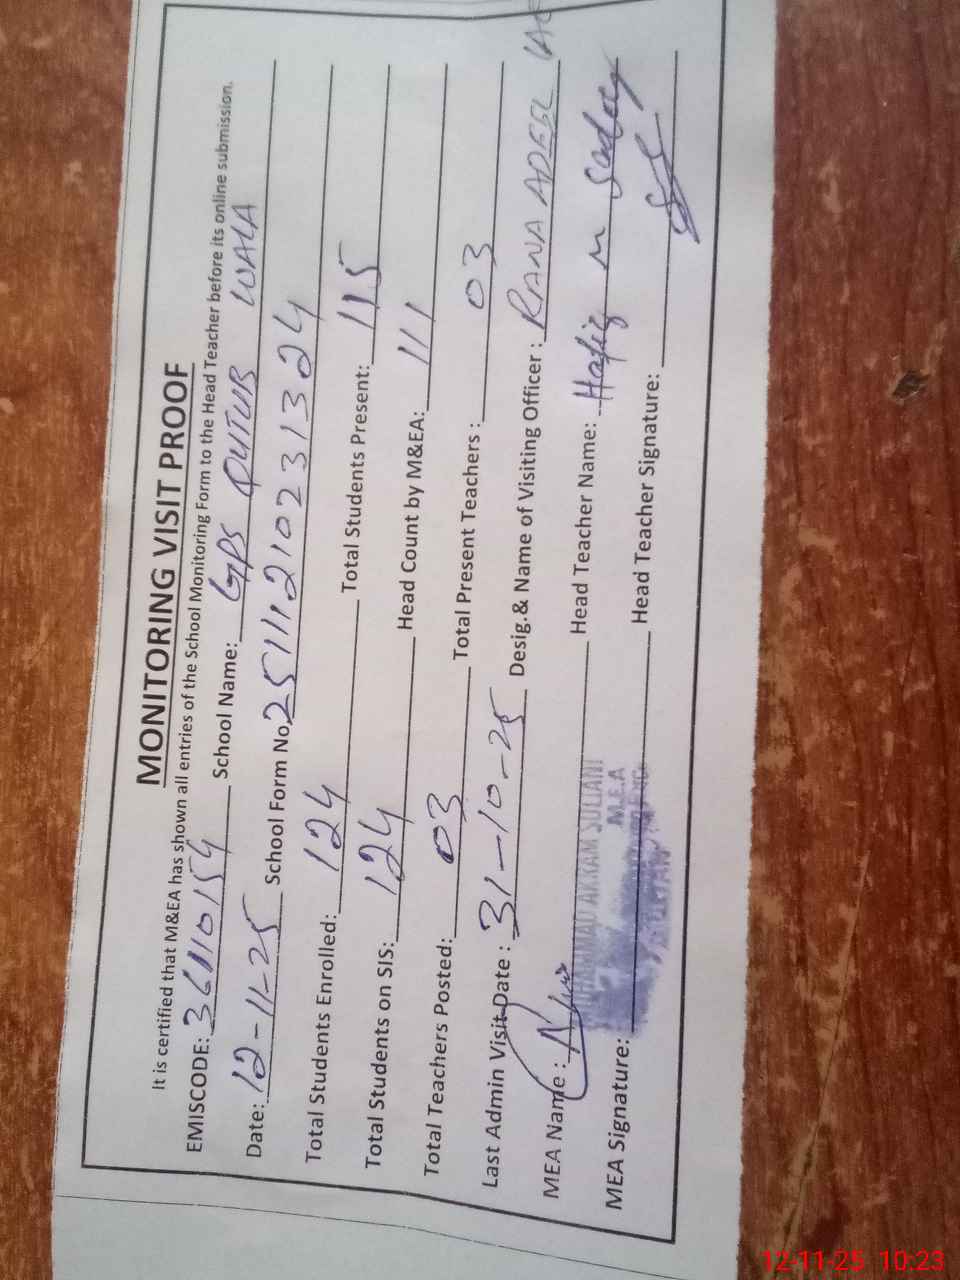 MONITORING VISIT PROOF
It is certified that M&EA has shown all entries of the School Monitoring Form to the Head Teacher before its online submission.
EMISCODE: 36110154 School Name: GPS QUTUB WALA
Date: 12-11-25 School Form No. 251111210231324
Total Students Enrolled: 124 Total Students Present: 115
Total Students on SIS: 124 Head Count by M&EA: 111
Total Teachers Posted: 03 Total Present Teachers : 03
Last Admin Visit Date : 31-10-25 Desig.& Name of Visiting Officer : RANA ADEEL
MEA Name : MUHAMMAD AKRAM Head Teacher Name: Hafiz m
M.E.A
MEA Signature: Head Teacher Signature:
12-11-25 10:23